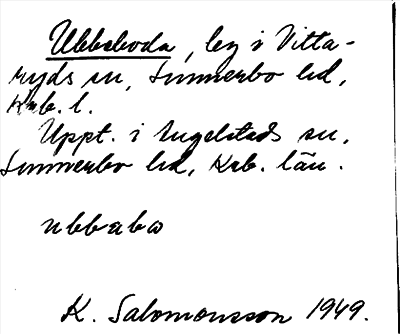 Ubbeboda, by i Vitta-
ryds sn, Sunnerbo hd,
Krb. l.
Uppt. i Angelstads sn,
Sunnerbo hd, Krb. län.
ubbabo
K. Salomonsson 1949.